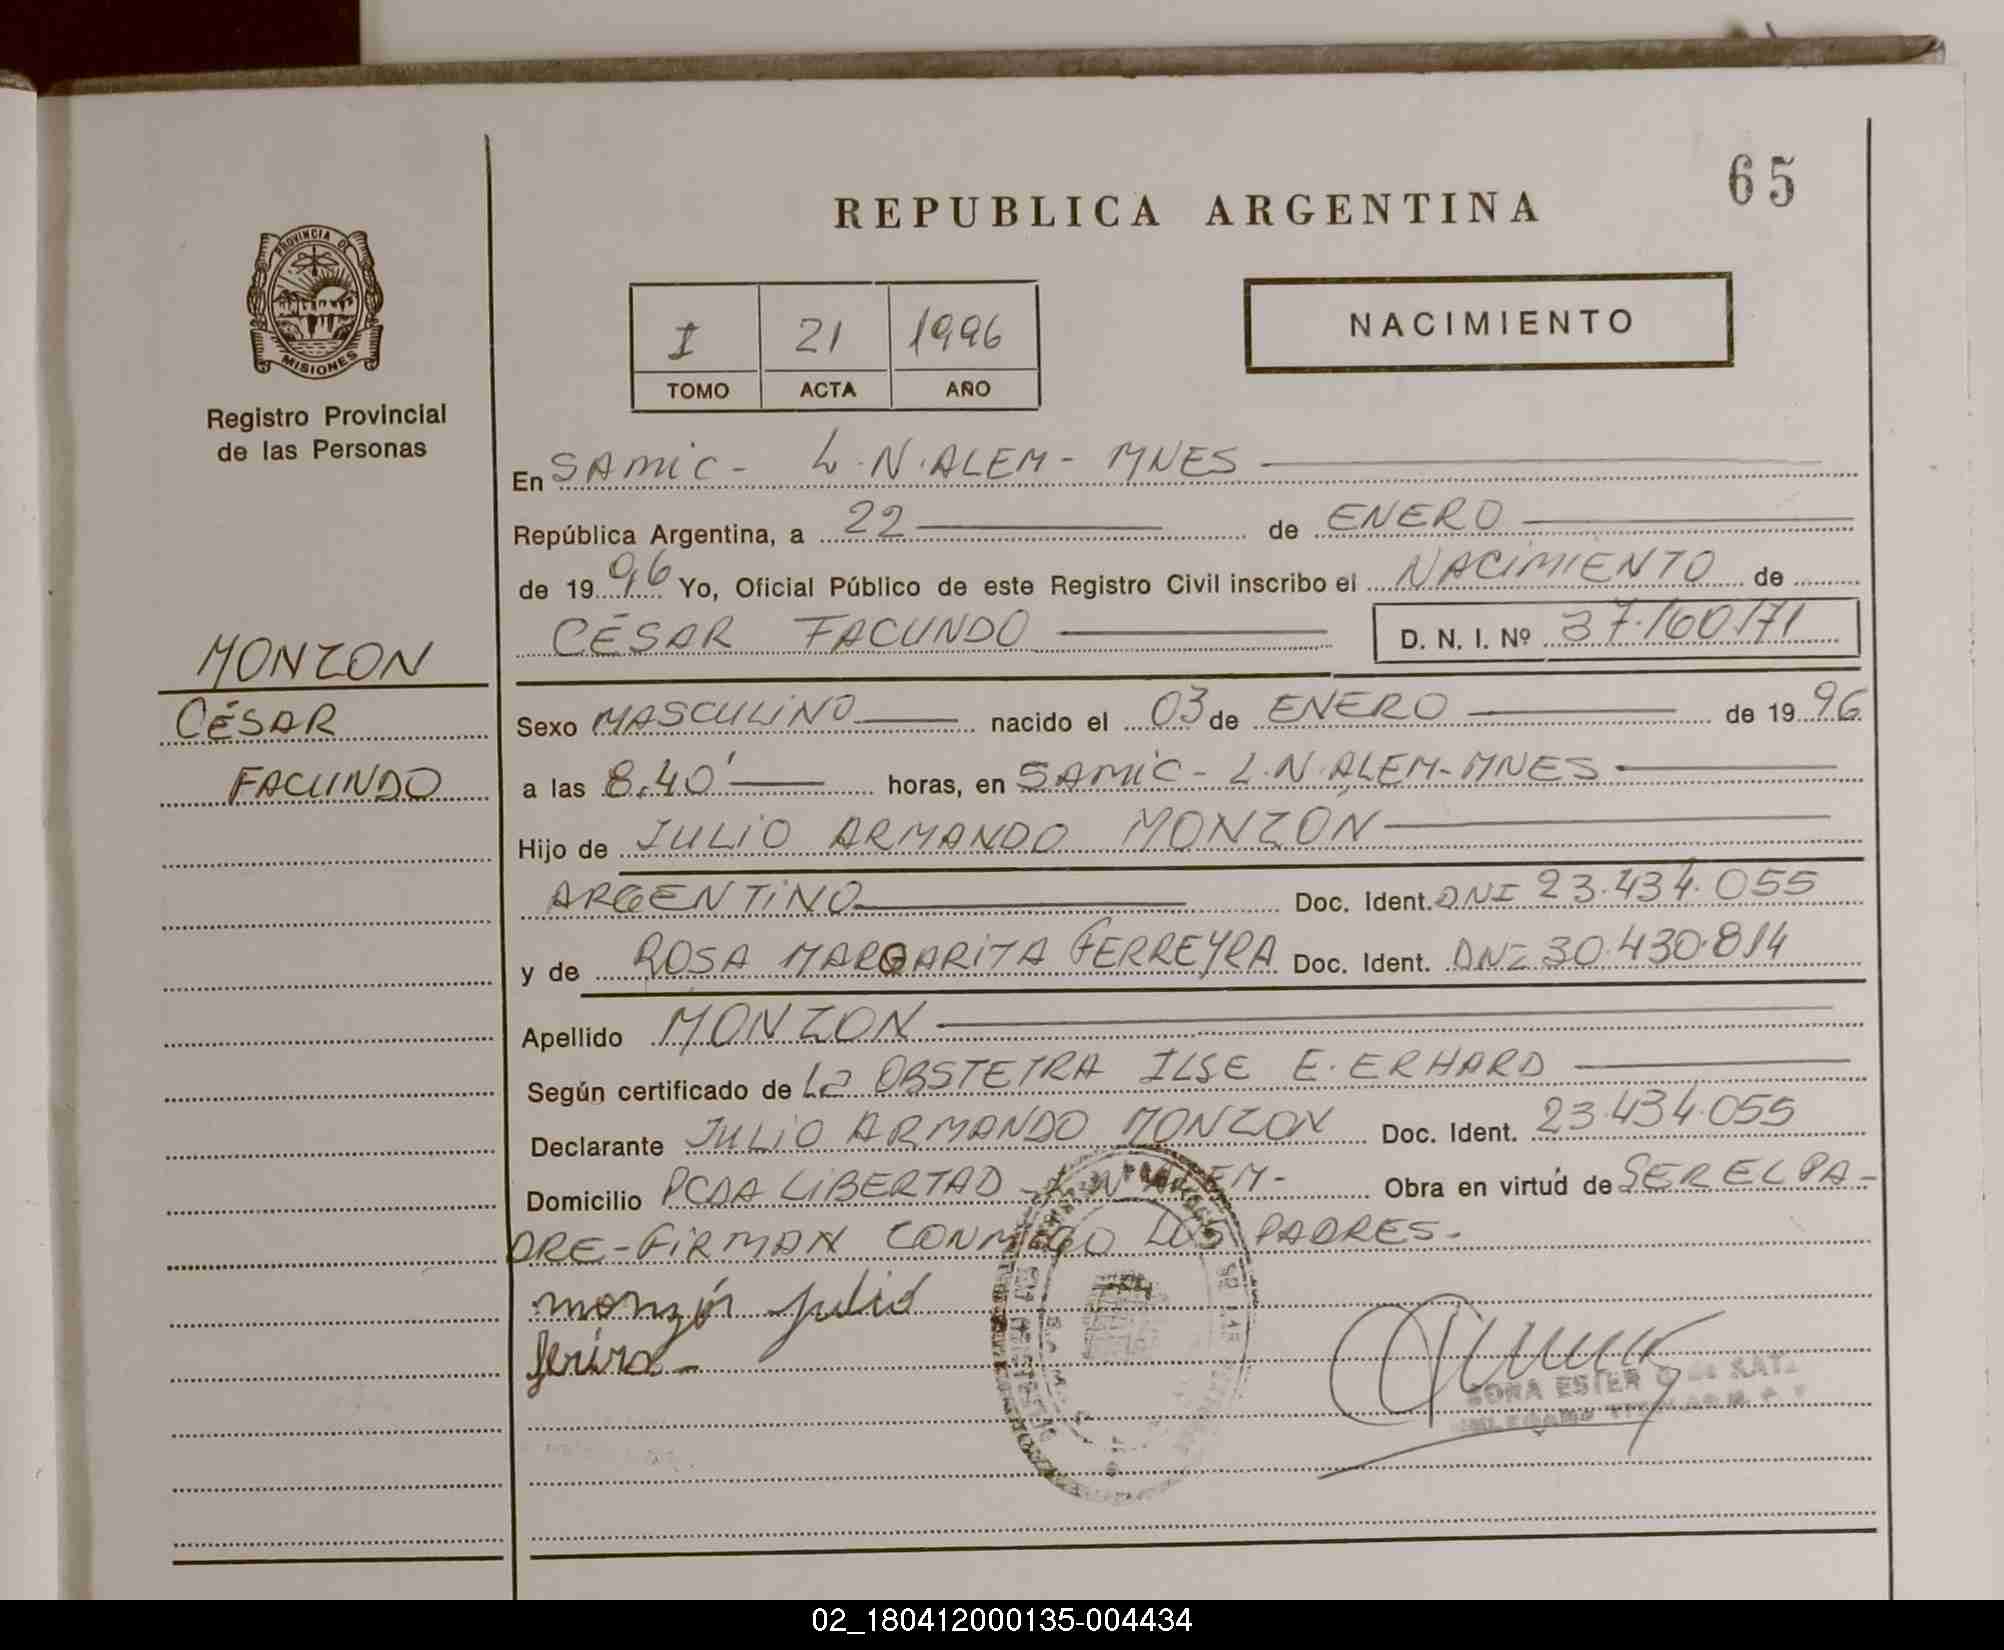 65
REPUBLICA ARGENTINA
PROVINCIA DE
MISIONES
Registro Provincial
de las Personas
I 21 1996
TOMO ACTA AÑO
NACIMIENTO
En SAMIC - L.N.ALEM - MNES
República Argentina, a 22 de ENERO
de 1996 Yo, Oficial Público de este Registro Civil inscribo el NACIMIENTO de
CÉSAR FACUNDO D. N. I. Nº 37.160.171
MONZON
CÉSAR
FACUNDO
Sexo MASCULINO nacido el 03 de ENERO de 1996
a las 8.40' horas, en SAMIC - L.N.ALEM-MNES
Hijo de JULIO ARMANDO MONZÓN
ARGENTINO Doc. Ident. DNI 23.434.055
y de ROSA MARGARITA FERREYRA Doc. Ident. DNI 30.430.814
Apellido MONZON
Según certificado de La OBSTETRA ILSE E. ERHARD
Declarante JULIO ARMANDO MONZON Doc. Ident. 23.434.055
Domicilio PCDA LIBERTAD - L.N ALEM - Obra en virtud de SER EL PA-
DRE - FIRMAN CONMIGO LOS PADRES -
monzón julio
ESTER
02_180412000135-004434